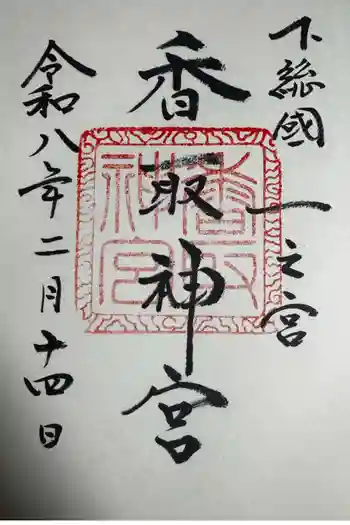 下總國一之宮
香取神宮
令和八年二月十四日
香取神宮